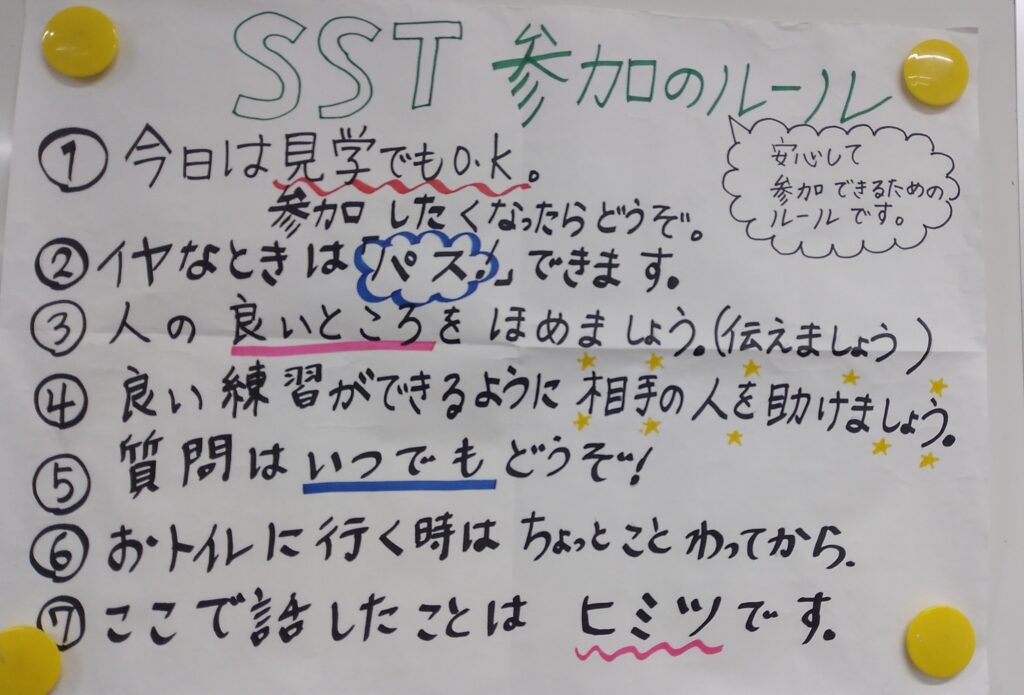 SST 参加のルール
安心して
参加できるための
ルールです。
① 今日は見学でもO.K。
参加したくなったらどうぞ。
② イヤなときは「パス。」できます。
③ 人の良いところをほめましょう。(伝えましょう)
④ 良い練習ができるように相手の人を助けましょう。
⑤ 質問はいつでもどうぞ!
⑥ お・トイレに行く時はちょっとことわってから.
⑦ ここで話したことは ヒミツです。